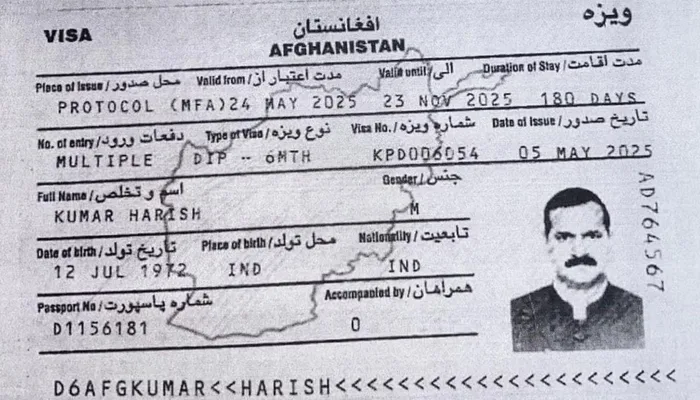 VISA
افغانستان
ویزه
AFGHANISTAN
Place of Issue / محل صدور Valid from / مدت اعتبار از Valid until / الی Duration of Stay / مدت اقامت
PROTOCOL (MFA) 24 MAY 2025 23 NOV 2025 180 DAYS
No. of entry / دفعات ورود Type of Visa / نوع ویزه Visa No. / شماره ویزه Date of Issue / تاریخ صدور
MULTIPLE DIP -- 6MTH KPD006054 05 MAY 2025
Full Name / اسم و تخلص Gender / جنس
KUMAR HARISH M
Date of birth / تاریخ تولد Place of birth / محل تولد Nationality / تابعیت
12 JUL 1972 IND IND
Passport No / شماره پاسپورت Accompanied by / همراهان
D1156181 0
AD764567
D6AFGKUMAR<<HARISH<<<<<<<<<<<<<<<<<<<<<<